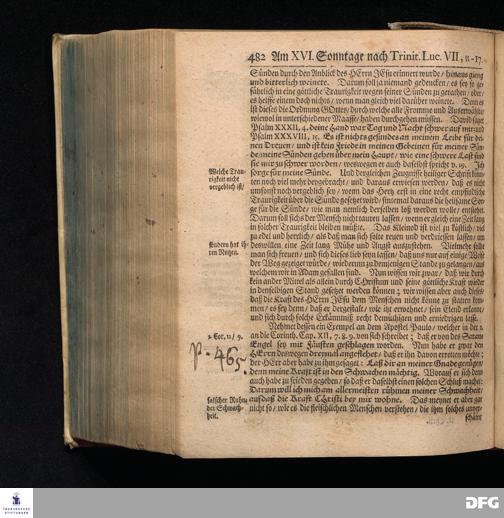 482 Am XVI. Sonntage nach Trinit. Luc. VII, 11-17.
Sünden durch den Anblick des HErrn JEsu erinnert wurde / hinaus gieng
und bitterlich weinete. Darum soll ja niemand gedencken / es sey so ge-
fährlich in eine göttliche Traurigkeit wegen seiner Sünden zu gerathen / oder
es helffe einem doch nichts / wenn man gleich viel darüber weinete. Denn es
ist dieses die Ordnung GOttes / durch welche alle Fromme und Auserwählte
wiewol in unterschiedener Maasse / haben durchgehen müssen. David saget
Psalm XXXII, 4. deine Hand war Tag und Nacht schwer auf mir und
Psalm XXXVIII, Es ist nichts gesundes an meinem Leibe für dei-
nen Dreuen / und ist kein Friede in meinen Gebeinen für meiner Sün-
de meine Sünden gehen über mein Haupt / wie eine schwere Last sind
sie mir zu schwer worden / weswegen er auch daselbst spricht v. 19. Ich
sorge für meine Sünde. Und dergleichen Zeugnisse heiliger Schrifft
ten noch viel mehr beygebracht / und daraus erwiesen werden / daß es nicht
umsonst noch vergeblich sey / wenn das Hertz erst in eine recht empfindliche
Traurigkeit über die Sünde gesetzet wird / sintemal daraus die heilsame Sor-
ge für die Sünde / wie man nemlich derselben loß werden wolle / entstehet.
Darum soll sichs der Mensch nicht tauren lassen / wenn er gleich eine Zeitlang
in solcher Traurigkeit bleiben müste. Das Kleinod ist viel zu köstlich / viel
zu edel und herrlich / als daß man sich solte reuen und verdriessen lassen / um
deswillen eine Zeit lang Mühe und Angst auszustehen. Vielmehr solte
man sich freuen / und sich dieses lieb seyn lassen / daß uns nur auf einige Weise
der Weg gezeiget würde / wiederum zu demjenigen Stande zu gelangen / aus
welchem wir in Adam gefallen sind. Nun wissen wir zwar / daß wir durch
kein ander Mittel als allein durch Christum und seine göttliche Kraft wieder
in denselbigen Stand gesetzet werden können ; wir wissen aber auch dieses /
daß die Kraft des HErrn JEsu dem Menschen nicht könne zu statten kom-
men / es sey denn / daß er dergestalt / wie ihr erwehnet / sein Elend erkenne /
und sich durch solche Erkänntniß recht demüthigen und erniedrigen lasse.
Nehmet dessen ein Exempel an dem Apostel Paulo / welcher in der 2.
an die Corinth. Cap. XII, 7. 8. 9. von sich schreibet ; daß er von des Satans
Engel sey mit Fäusten geschlagen worden. Nun habe er zwar den
HErrn deswegen dreymal angeflehet / daß er ihn davon erretten möchte ;
der HErr aber habe zu ihm gesaget : Laß dir an meiner Gnade genügen
denn meine Kraft ist in den Schwachen mächtig. Worauf er sich denn
auch habe zu frieden gegeben / so daß er daselbst einen solchen Schluß machet:
Darum will ich mich am allermeisten rühmen meiner Schwachheit /
auf daß die Kraft Christi bey mir wohne. Das meynet er aber gar
nicht so / wie es die fleischlichen Menschen verstehen / die ihm solches
schänd-
Welche Trau-
rigkeit nicht
vergeblich ist/
sondern hat ih-
ren Nutzen.
2 Cor. 12/ 9.
p. 465.
falscher Ruhm
der Schwach-
heit.
DFG